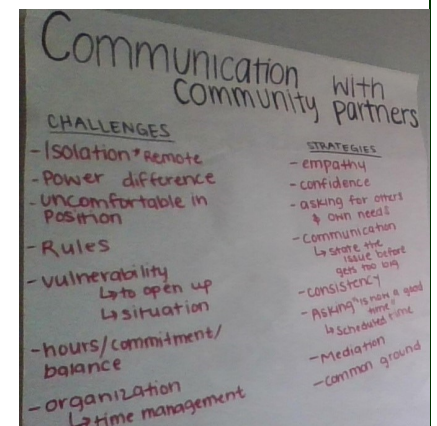 Communication with
community partners
CHALLENGES
- Isolation * Remote
- Power difference
- Uncomfortable in
Position
- Rules
- vulnerability
↳ to open up
↳ situation
- hours/commitment/
balance
- organization
↳ time management
STRATEGIES
- empathy
- confidence
- asking for others
& own needs
- communication
↳ state the
issue before
gets too big
- consistency
- Asking "is now a good
time"
↳ scheduled time
- Mediation
- common ground